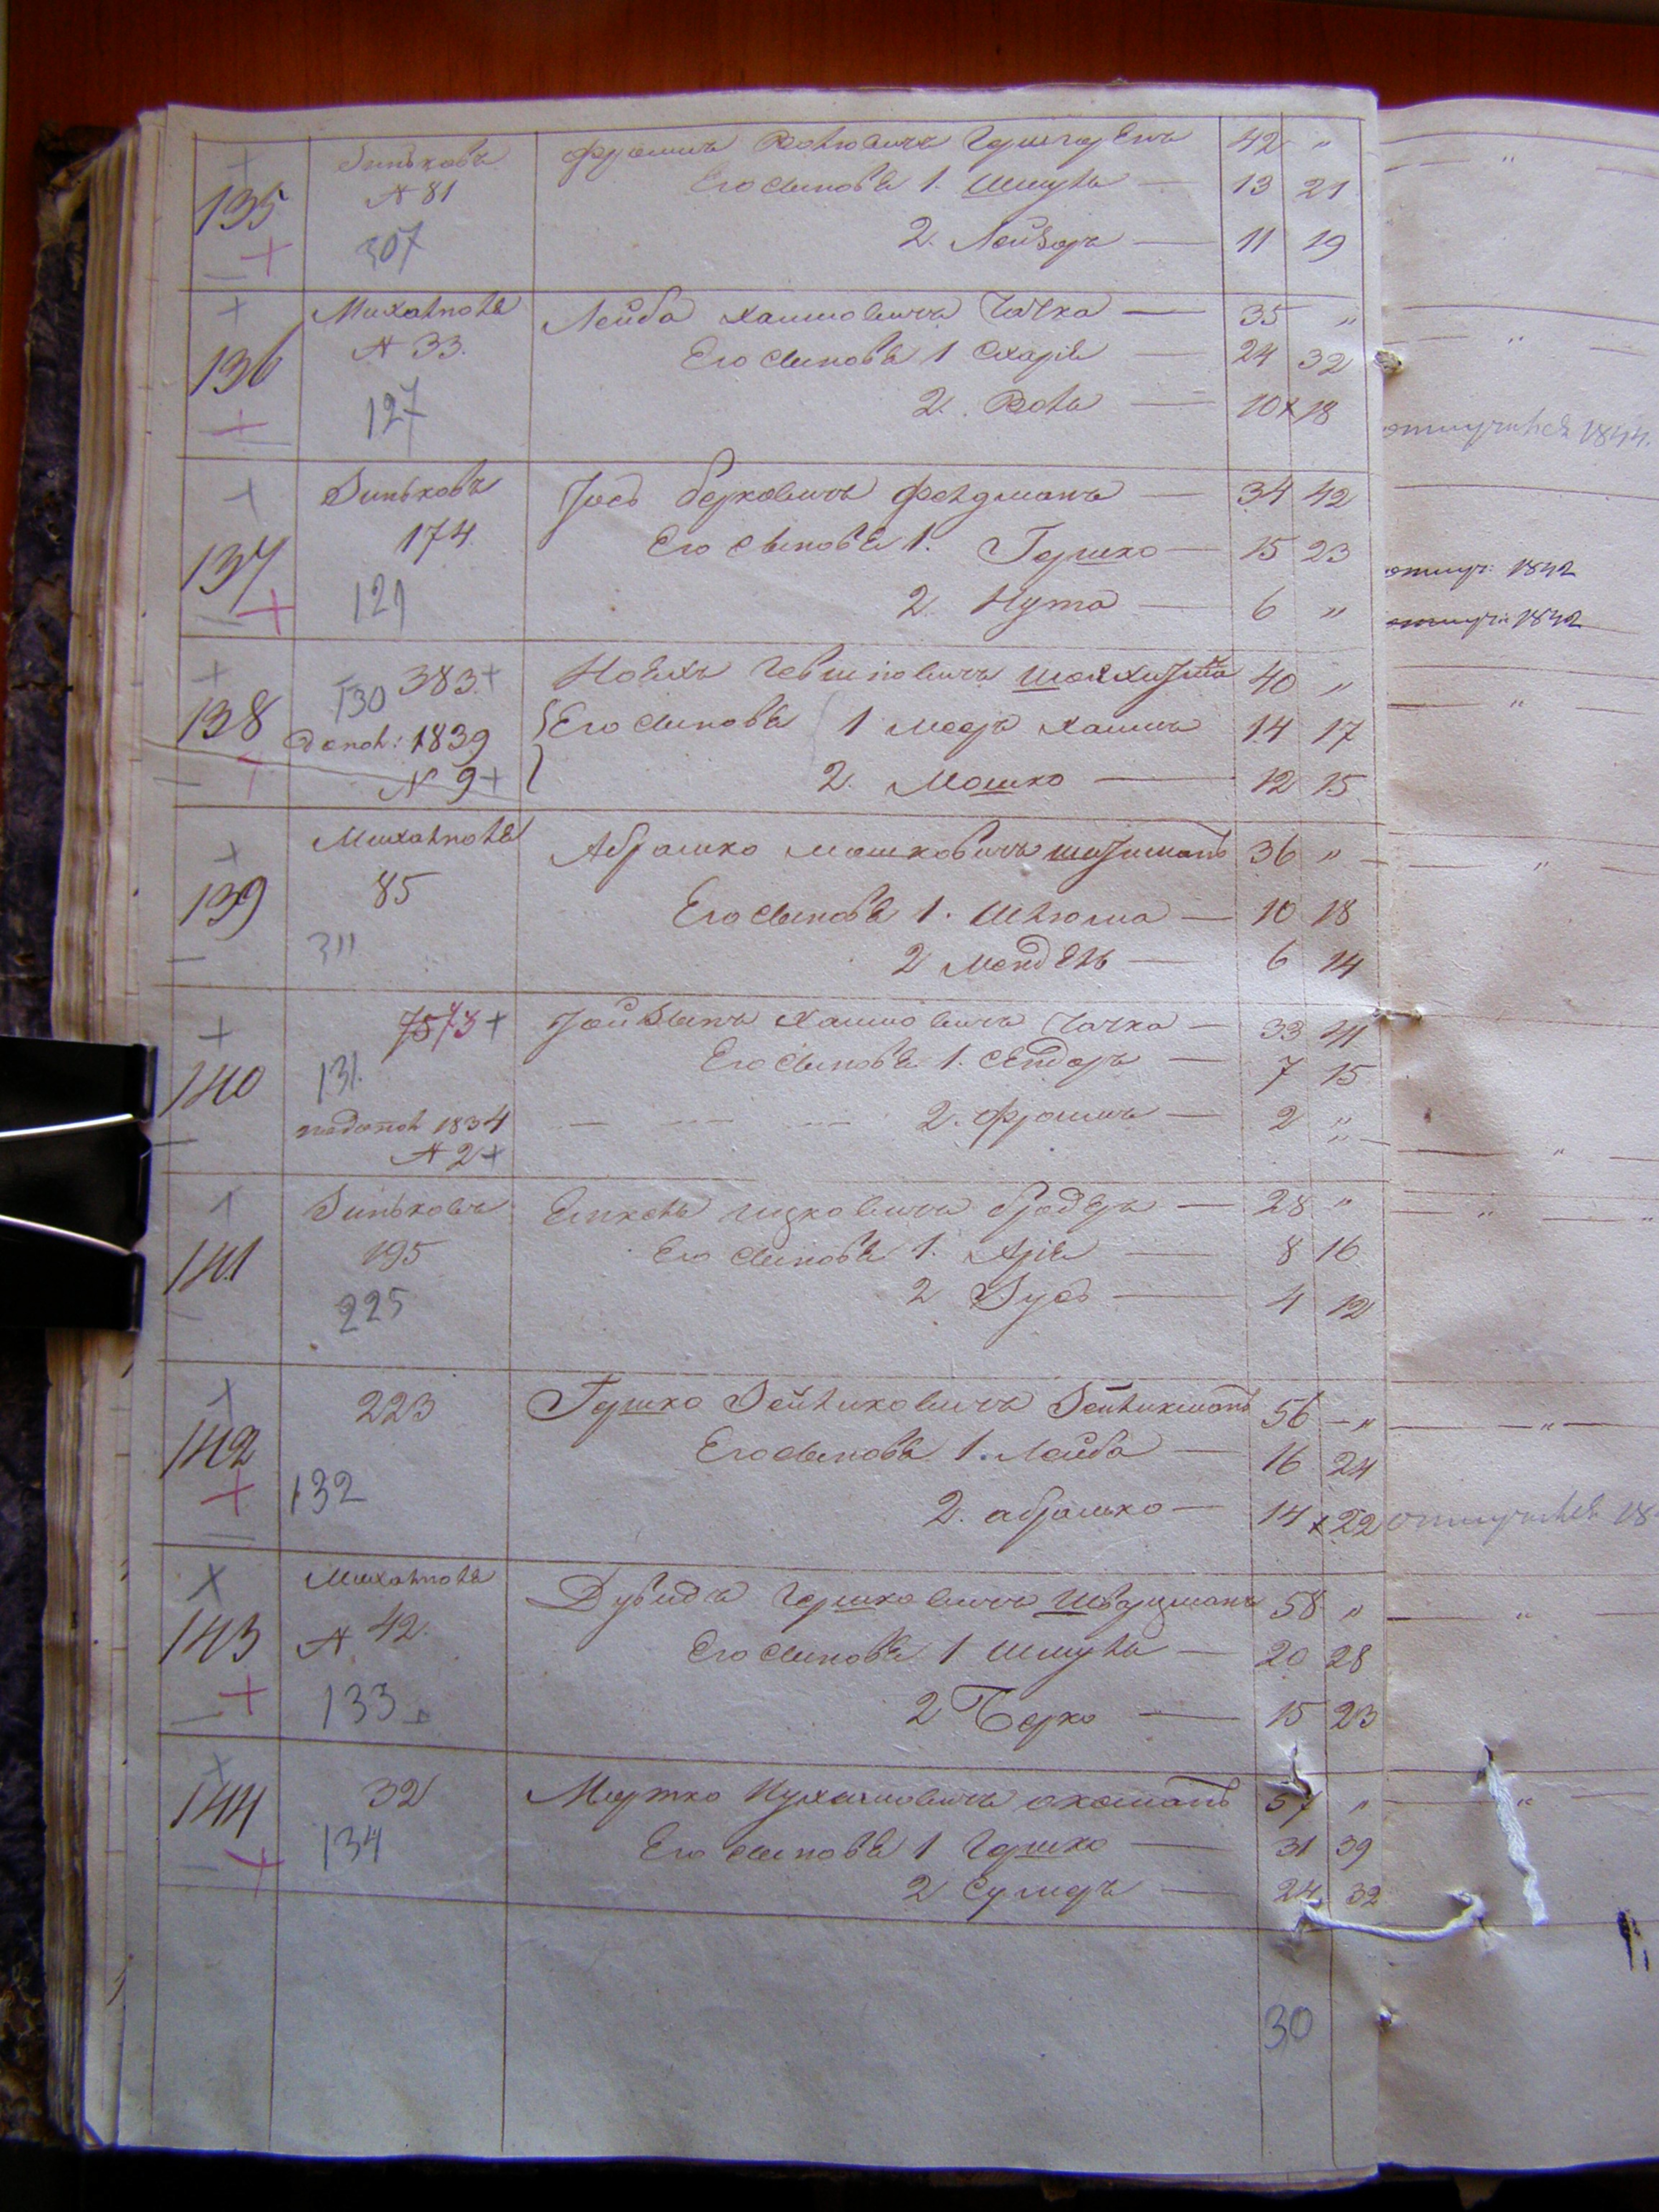 135 Зиньковъ Фроимъ Волковичъ 42 "
№ 81 Его сыновья 1. Шмуль — 13 21
307 2. Лейзоръ — 11 19
136 Михалполь Лейба Хаимовичъ Чачка — 35 "
№ 33. Его сыновья 1 Схарiя — 24 32
127 2. Волъ — 10 x 18 отлучился 1844.
137 Зиньковъ Iосъ Берковичъ Фельдманъ — 34 42
174. Его сыновья 1. Гершко — 15 23 отлуч: 1842
121 2. Нута — 6 " отлуч: 1842
138 383 + Его сыновья 40 "
130 допол: 1839 1 Мееръ Хаимъ 14 17
№ 9 + 2. Мошко — 12 15
139 Михалполь Абрашко Мошковичъ 36 "
85 Его сыновья 1. Шлюма — 10 18
311 2 Мендель — 6 14
140 7573 + Хаимовичъ Чачка — 33 41
131. Его сыновья 1. Сендоръ — 7 15
допол 1834 2. Фроимъ — 2 "
№ 2 +
141 Зиньковъ Ицковичъ Бродеръ — 28 "
195 Его сыновья 1. Арiя — 8 16
225 2 Зусъ — 4 12
142 223 Гершко Зейликовичъ Зейликманъ 56 — "
Его сыновья 1. Лейба — 16 24
132 2. Абрашко — 14 x 22 отлучился 18
143 Михалполь Дувидъ Гершковичъ Шварцманъ 58 "
№ 42. Его сыновья 1 Шмуль — 20 28
133 2 Берко — 15 23
144 32 Мортко Нухимовичъ 57 "
134 Его сыновья 1 Гершко — 31 39
2 Сумеръ — 24 32
30